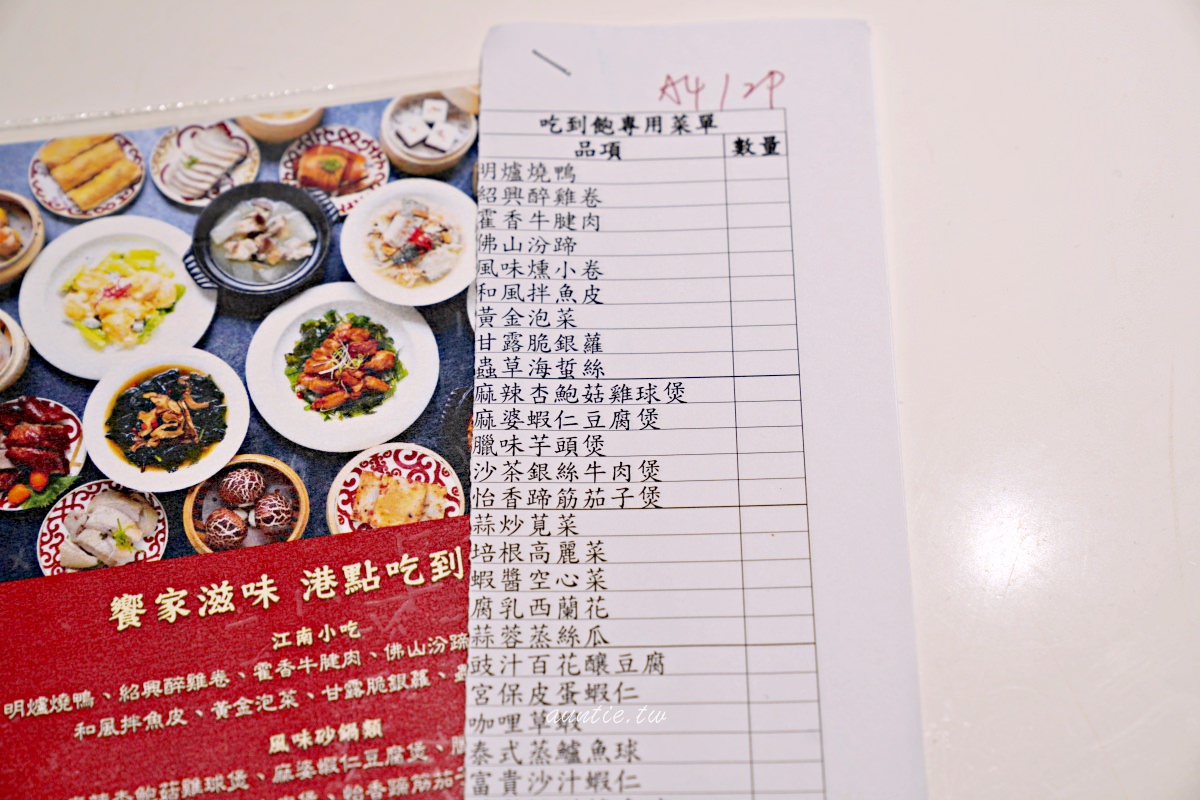 A4 / 2P
吃到飽專用菜單
品項 數量
明爐燒鴨
紹興醉雞卷
霍香牛腱肉
佛山汾蹄
風味燻小卷
和風拌魚皮
黃金泡菜
甘露脆銀蘿
蟲草海蜇絲
麻辣杏鮑菇雞球煲
麻婆蝦仁豆腐煲
臘味芋頭煲
沙茶銀絲牛肉煲
怡香蹄筋茄子煲
蒜炒莧菜
培根高麗菜
蝦醬空心菜
腐乳西蘭花
蒜蓉蒸絲瓜
豉汁百花釀豆腐
宮保皮蛋蝦仁
咖哩草蝦
泰式蒸鱸魚球
富貴沙汁蝦仁
饗家滋味 港點吃到
江南小吃
明爐燒鴨、紹興醉雞卷、霍香牛腱肉、佛山汾蹄
和風拌魚皮、黃金泡菜、甘露脆銀蘿、
風味砂鍋類
杏鮑菇雞球煲、麻婆蝦仁豆腐煲、
煲、怡香蹄筋茄子
auntie.tw